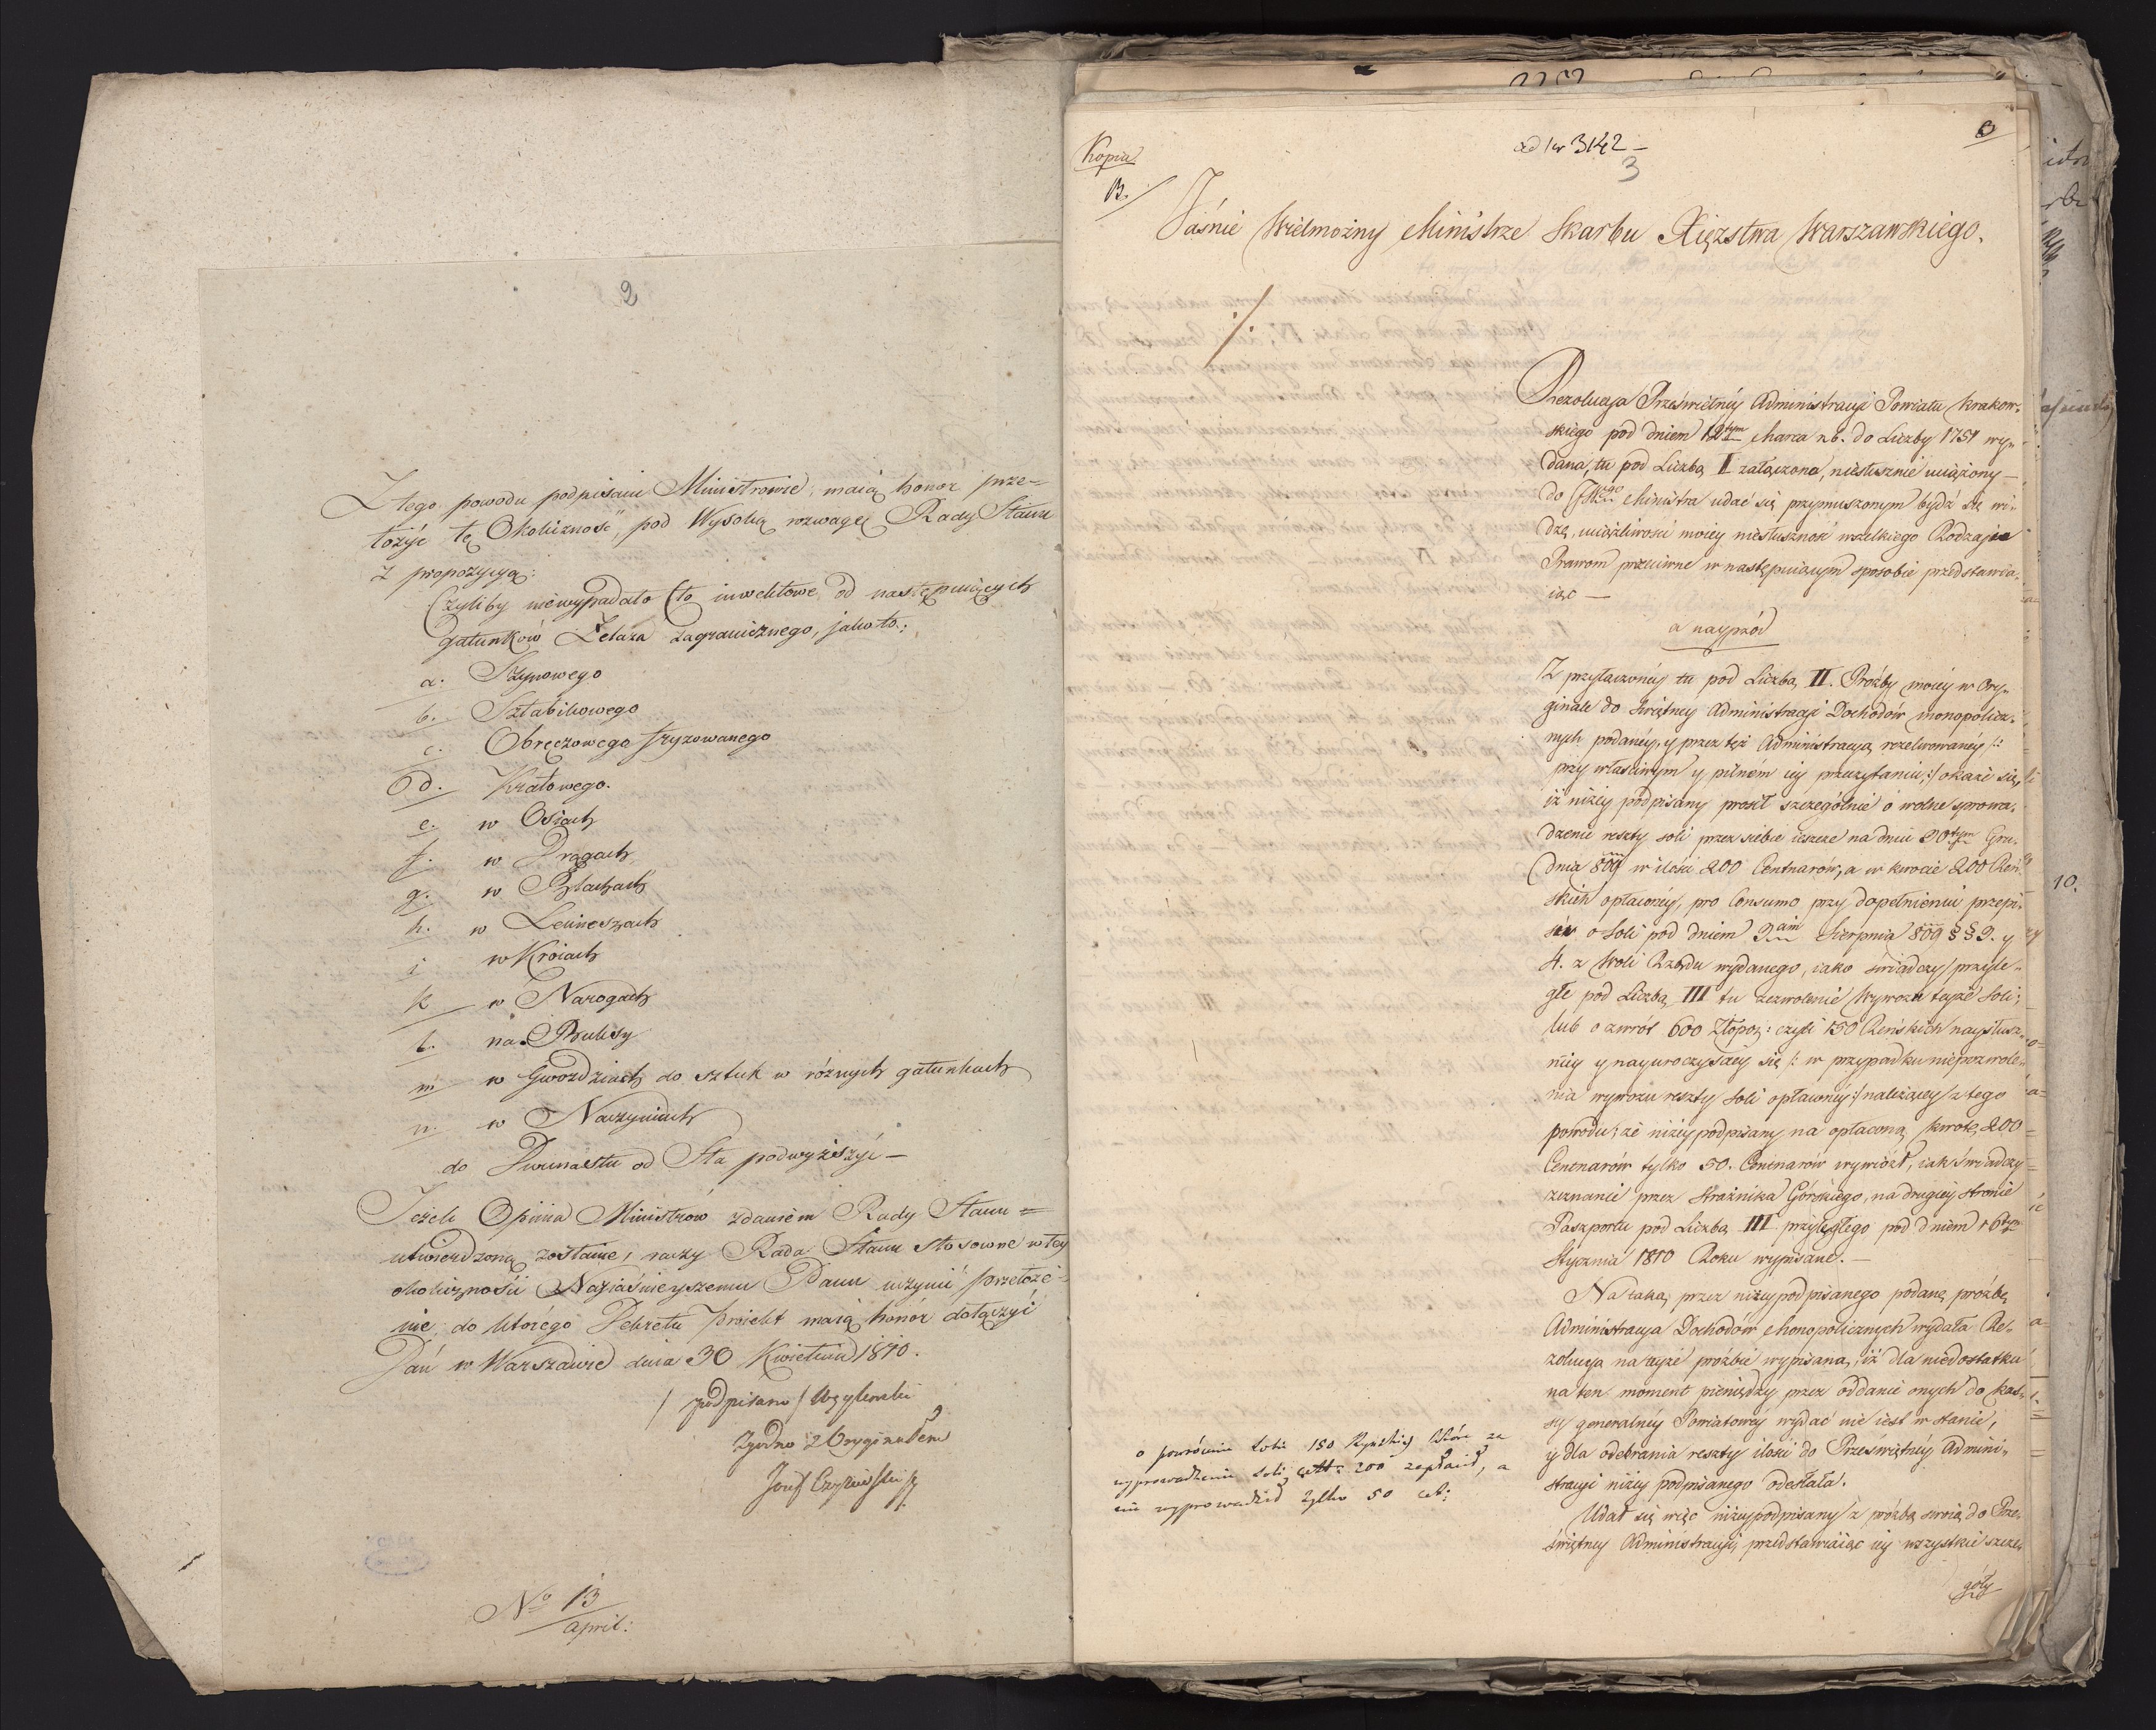 2
Z tego powodu podpisani Ministrowie maią honor prze-
łożyć tę Okoliczność, pod Wysoką rozwagę Rady Stanu
z propozycyą:
Czyliby niewypadało Cło inwektowe od następuiących
gatunków Żelaza zagranicznego, jako to:
a. Szynowego
b. Sztabikowego
c. Obręczowego fryzowanego
d. Kratowego.
e. w Osiach
f. w Drągach
g. w Blachach
h. w Lemieszach
i w Kroiach
k w Narogach
l. na
m w Gwozdziach do sztuk w różnych gatunkach
n. w Naczyniach
do Dwunastu od Sta podwyższyć —
Jeżeli Opinia Ministrów zdaniem Rady Stanu =
utwierdzoną zostanie, raczy Rada Stanu stosowne w tey
okoliczności Nayiaśnieyszemu Panu uczynić przełoże-
nie, do którego Dekretu proiekt maią honor dołączyć
Dań w Warszawie dnia 30 Kwietnia 1810.
/ podpisano / Węgleński
Zgodno z Oryginałem
Józef
No 13
april:
Kopia
B.
ad Nr 3142 —
3
Jaśnie Wielmożny Ministrze Skarbu Xięztwa Warszawskiego.
./.
Rezolucya Prześwietnéy Administracyi Powiatu Krakow-
skiego pod dniem 12tym Marca r.b. do Liczby 1751 wy-
dana, tu pod Liczbą I załączona, niesłusznie uciążony —
do JWgo Ministra udać się przymuszonym bydź się wi-
dzę, uciążliwości moiey niesłuszność wszelkiego Rodzaju
Prawom przeciwne w następuiącym sposobie przedstawia-
iąc —
a nayprzód
Z przyłączonéy tu pod Liczbą II. Prośby moiey w Ory-
ginale do Świetney Administracyi Dochodów monopolicz-
nych podanéy, y przez też Administracyą rezolwowanéy /:
przy właściwym y pilném iey przeczytaniu, :/ okaże się,
iż niżey podpisany prosił szczególnie o wolne sprowa-
dzenie reszty soli przez siebie ieszcze na dniu 20tym Gru-
dnia 809 w ilości 200 Centnarów, a w kwocie 200 Reń-
skich opłaconey, pro Consumo przy dopełnieniu przepi-
sów o Soli pod dniem Sierpnia 809 §§ 2. y
4. z Woli Rządu wydanego, iako świadczy przyle-
głe pod Liczbą III tu zezwolenie Wywozu teyże Soli;
lub o zwrót 600 Złopol: czyli 150 Reńskich naysłusz-
niey y nayuroczyściey się /: w przypadku niepozwole-
nia wywozu reszty Soli opłaconéy :/ należącey z tego
powodu, że niżeypodpisany na opłaconą kwotę 200
Centnarów tylko 50. Centnarów wywiózł, iak świadczy
zeznanie przez Strażnika Górskiego, na drugiey stronie
Paszportu pod Liczbą III przyległego pod dniem 16tym
Stycznia 1810 Roku wypisane. —
Na taką przez niżeypodpisanego podaną prośbę
Administracya Dochodów Monopolicznych wydała Re-
zolucyą na teyże prośbie wypisaną, iż dla niedostatku
na ten moment pieniędzy przez oddanie onych do Kas-
sy generalnéy Powiatowéy wydać nie iest w stanie,
y dla odebrania reszty ilości do Prześwietnéy Admini-
stracyi niżey podpisanego odesłała.
Udał się więc niżeypodpisany z prośbą swoią do Prze-
świetney Administracyi, przedstawiaiąc iey wszystkie szcze-
góły
o powrócenie
wyprowadzenie Soli 200 zapłacił, a
nie wyprowadził tylko 50
10.